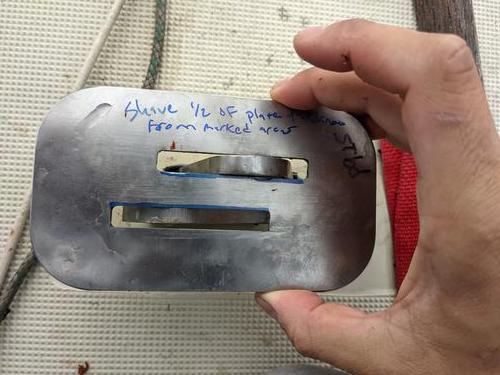 Shave 1/2 OF plate thickness
From marked areas
stbd